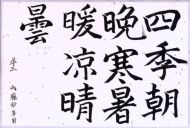 四季朝
晩寒暑
暖涼晴
曇